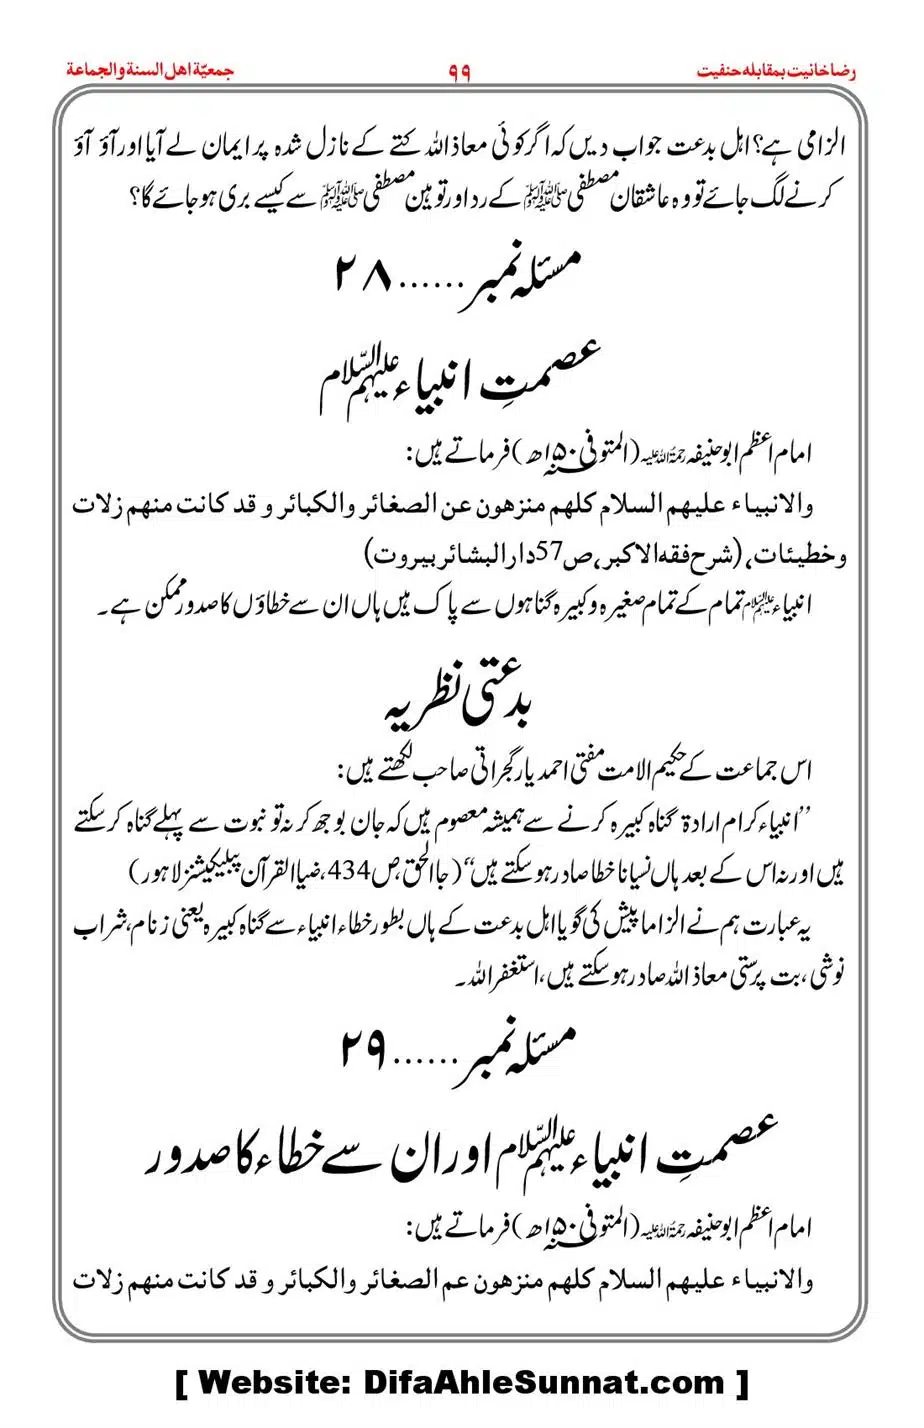 رضاخانیت بمقابلہ حنفیت ۹۹ جمعیّة اهل السنة والجماعة
الزامی ہے؟ اہل بدعت جواب دیں کہ اگر کوئی معاذ اللہ کتے کے نازل شدہ پر ایمان لے آیا اور آؤ آؤ
کرنے لگ جائے تو وہ عاشقان مصطفی ﷺ کے رد اور توہین مصطفی ﷺ سے کیسے بری ہو جائے گا؟
مسئلہ نمبر......۲۸
عصمتِ انبیاء علیہم السّلام
امام اعظم ابوحنیفہ رحمۃ اللہ علیہ (المتوفی ۱۵۰ھ) فرماتے ہیں:
والانبیاء علیهم السلام کلهم منزهون عن الصغائر والکبائر و قد کانت منهم زلات
وخطیئات، (شرح فقه الاکبر، ص57 دار البشائر بیروت)
انبیاء علیہم السلام تمام کے تمام صغیرہ و کبیرہ گناہوں سے پاک ہیں ہاں ان سے خطاؤں کا صدور ممکن ہے۔
بدعتی نظریہ
اس جماعت کے حکیم الامت مفتی احمد یار گجراتی صاحب لکھتے ہیں:
’’انبیاء کرام ارادۃ گناہ کبیرہ کرنے سے ہمیشہ معصوم ہیں کہ جان بوجھ کر نہ تو نبوت سے پہلے گناہ کر سکتے
ہیں اور نہ اس کے بعد ہاں نسیانا خطا صادر ہو سکتے ہیں‘‘ (جا الحق، ص434، ضیا القرآن پبلیکیشنز لاہور)
یہ عبارت ہم نے الزاما پیش کی گویا اہل بدعت کے ہاں بطور خطاء انبیاء سے گناہ کبیرہ یعنی زنا م، شراب
نوشی، بت پرستی معاذ اللہ صادر ہو سکتے ہیں، استغفر اللہ۔
مسئلہ نمبر......۲۹
عصمتِ انبیاء علیہم السّلام اور ان سے خطاء کا صدور
امام اعظم ابوحنیفہ رحمۃ اللہ علیہ (المتوفی ۱۵۰ھ) فرماتے ہیں:
والانبیاء علیهم السلام کلهم منزهون عم الصغائر والکبائر و قد کانت منهم زلات
[ Website: DifaAhleSunnat.com ]